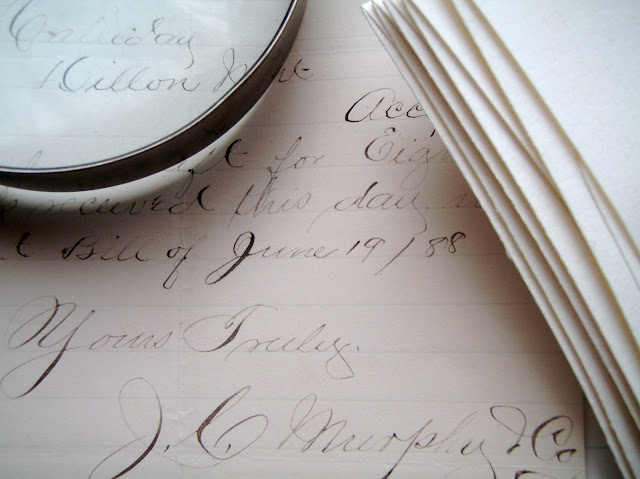 Dillon Mont
Acc
for Eigh
received this day
Bill of June 19/88
Yours Truly.
J. C. Murphy & Co